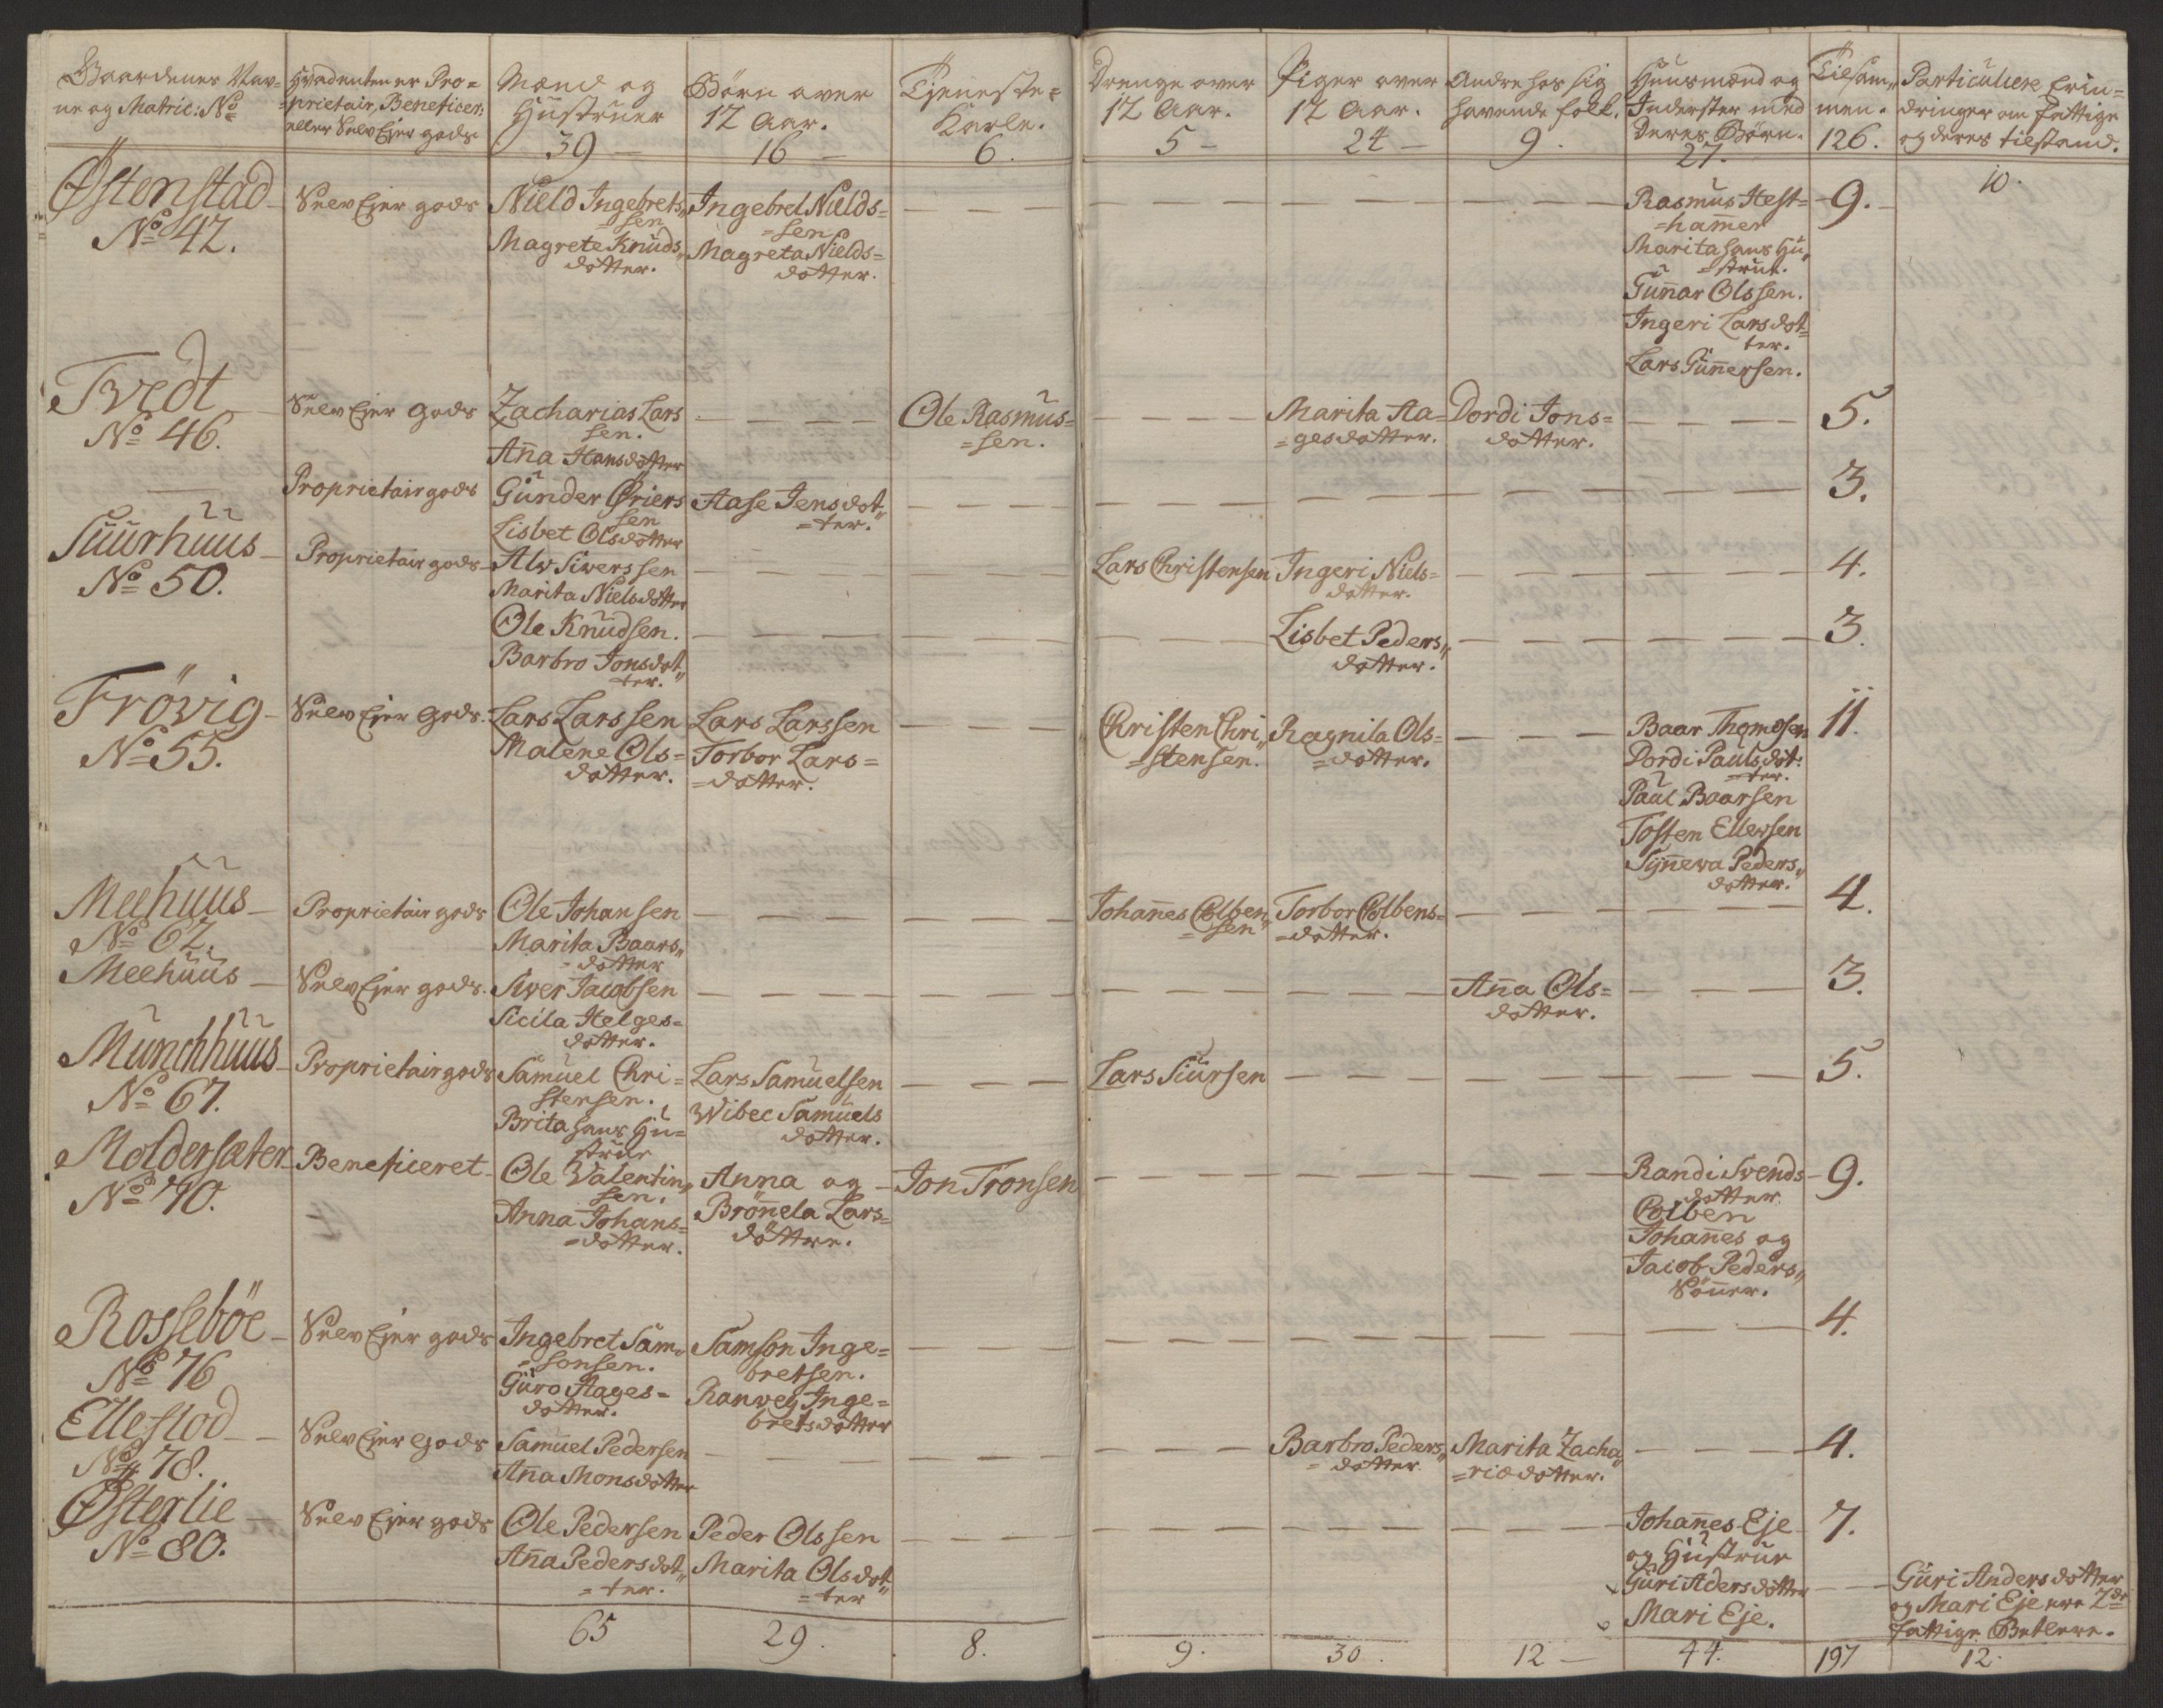 Gaardenes Nav=
ne og Matric: No
Hvadenten er Pro=
=prietair, Beneficer:
eller Selv Ejer gods
Mænd og
Hüstrüer
39 —
Börn over
12 Aar.
16 —
Tjeneste=
Karle.
6.
Drenge over
12 Aar.
5 —
Piger over
12 Aar.
24 —
Andre hos sig
havende folk.
9.
Huusmænd og
Inderster med
Deres Börn.
27.
Tilsam„
men.
126.
Particuliere Erin=
dringer om fattige
og deres tilstand.
10.
Østenstad
No 42.
Selv Ejer gods
Nield Ingebrets„
=sen
Magrete Knuds„
dotter.
Ingebrel Nields=
=sen
Magreta Nields=
dotter.
Rasmus Hest=
=hamer
Marita hans Hu„
=strue.
Gunar Olssen.
Ingeri Larsdot=
ter.
Lars Gunersen.
9.
Tvedt
No 46.
Selv Ejer Gods
Zacharias Lars
sen.
Aña Hansdotter
Ole Rasmus=
=sen.
Marita Aa=
=gesdotter.
Dordi Jons=
dotter.
5.
Proprietair gods
Günder Griers
sen
Lisbet Olsdotter
Aase Jensdot„
=ter.
3.
Suurhuus
No 50.
Proprietair gods
Alv Siverssen
Marita Nielsdotter
Lars Christensen
Ingeri Niels=
dotter.
4.
Ole Knudsen.
Barbro Jonsdot„
ter.
Lisbet Peders„
dotter.
3.
Frövig
No 55.
Selv Ejer Gods.
Lars Larssen
Malene Ols=
dotter.
Lars Larssen
Torbor Lars=
=dotter.
Christen Chri„
=stensen.
Ragnila Ols=
=dotter.
Baar Thomesen
Dordi Paulsdot:
=ter.
Paul Baarsen
Tosten Ellersen
Synneva Peders„
dotter.
11.
Meehuus
No 62.
Proprietair gods
Ole Johansen
Marita Baars„
=dotter
Johañes Colben„
=sen
Torbor Colbens=
=dotter.
4.
Meehuus
Selv Ejer gods.
Siver Jacobsen
Sicila Helges=
dotter.
Aña Ols=
dotter.
3.
Munchhuus
No 67.
Proprietair gods
Samuel Chri=
stensen.
Brita hans Hu=
strue
Lars Samuelsen
Wibec Samuels
dotter.
Lars Siursen
5.
Moldersæter
No 70.
Beneficeret
Ole Valentin„
sen.
Anna Johans=
=dotter.
Anna og
Brönela Lars=
döttre.
Jon Tronsen
Randi Svends
dotter
Colben
Johañes og
Jacob Peders„
Sönner.
9.
Rosseböe
No 76
Selv Ejer gods
Ingebret Sam„
=sonsen.
Güro Aages=
dotter.
Samson Inge=
bretsen.
Ranveg Inge=
bretsdotter
4.
Elleflod
No 78.
Selv Ejer Gods
Samuel Pedersen
Aña Monsdotter
Barbro Peders„
=dotter
Marita Zacha„
=riædotter.
4.
Østerlie
No 80.
Selv Ejer gods
Ole Pedersen
Aña Pedersdot„
=ter.
Peder Olssen
Marita Olsdot„
=ter
Johañes Eje
og Hüstrue
Güri Adersdotter
Mari Eje.
7.
Güri Andersdotter
og Mari Eje ere 2de
fattige Betlere.
65
29.
8.
9.
30.
12 —
44.
197
12.